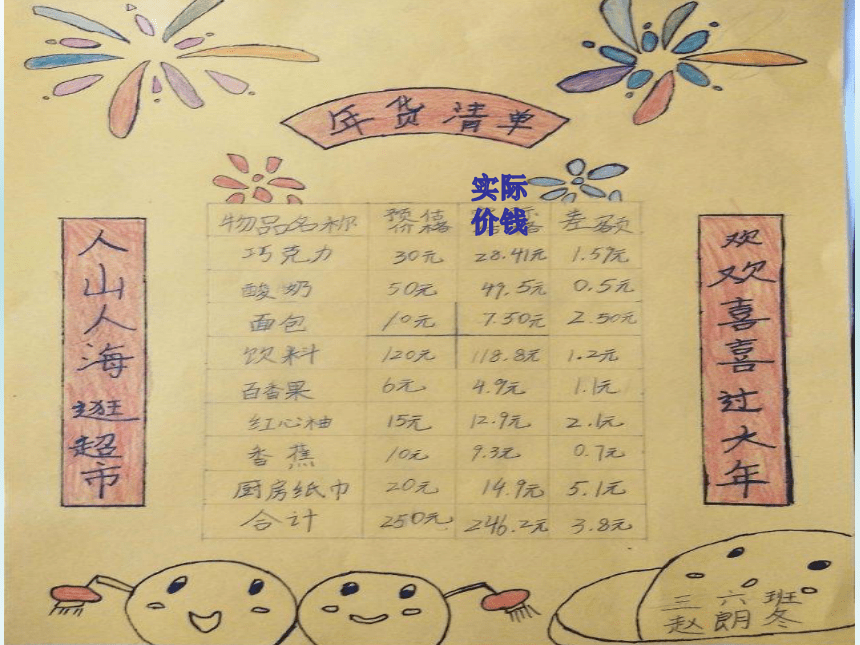 年货清单
人山人海逛超市
物品名称 预估价格 实际价钱 差额
巧克力 30元 28.41元 1.59元
酸奶 50元 49.5元 0.5元
面包 10元 7.50元 2.50元
饮料 120元 118.8元 1.2元
百香果 6元 4.9元 1.1元
红心柚 15元 12.9元 2.1元
香蕉 10元 9.3元 0.7元
厨房纸巾 20元 14.9元 5.1元
合计 250元 246.2元 3.8元
欢欢喜喜过大年
三六班
赵朗冬